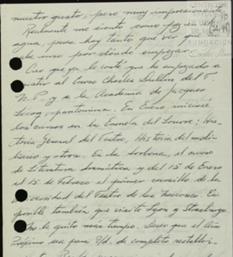 nuestro gusto, pero muy impresionante
Realmente me siento como pez en el
agua, pero hay tanto que ver que
sabe uno por donde empezar.
Creo que ya le conté que he empezado a
asistir al Curso Charles Dullin del T.
N.P. y a la Academia de Jacques
Lecoq, pantomima. En Enero iniciaré
los cursos en la Escuela del Louvre; His-
toria General del Teatro, Historia del mobi-
liario y otros. En la Sorbona, el curso
de Literatura dramática; y del 15 de Enero
al 15 de Febrero el primer cursillo de la
Universidad del Teatro de las Naciones. Es
posible también que visite Lyon y Strasburgo
no le quito más tiempo. Deseo que el Año
Próximo sea para Ud. de completo